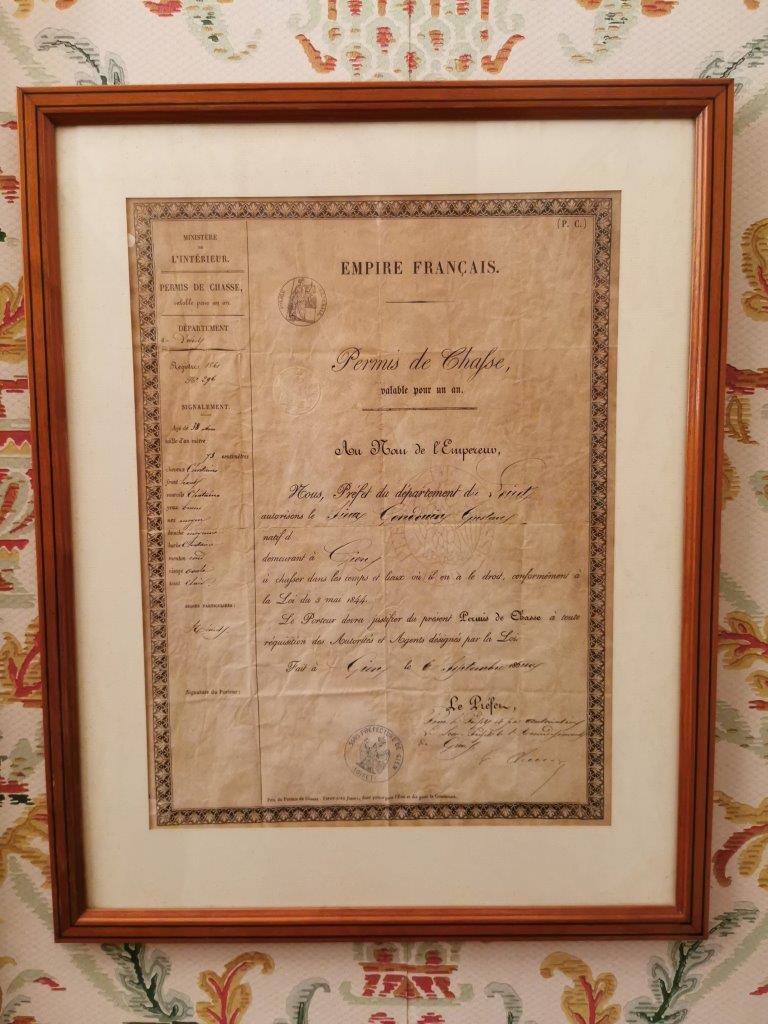 MINISTÈRE
DE
L'INTÉRIEUR.
PERMIS DE CHASSE,
valable pour un an.
DÉPARTEMENT
Registre 1861
N° 296
SIGNALEMENT.
Agé de 38 ans
taille d'un mètre
78 centimètres
cheveux Chatains
front haut
sourcils Chatains
yeux bruns
nez moyen
bouche moyenne
barbe Chatain
menton rond
visage ovale
teint Clair
SIGNES PARTICULIERS :
Signature du Porteur :
(P. C.)
EMPIRE FRANÇAIS.
Permis de Chasse,
valable pour un an.
Au Nom de l'Empereur,
Nous, Préfet du département du Loiret
autorisons le Sieur Gustave
natif d
demeurant à Gien
à chasser dans les temps et lieux où il en à le droit, conformément à
la Loi du 3 mai 1844.
Le Porteur devra justifier du présent Permis de Chasse à toute
réquisition des Autorités et Agents désignés par la Loi.
Fait à Gien le 6 Septembre
Le Préfet,
Gien
SOUS-PRÉFECTURE DE GIEN
LOIRET
Prix du Permis de Chasse :